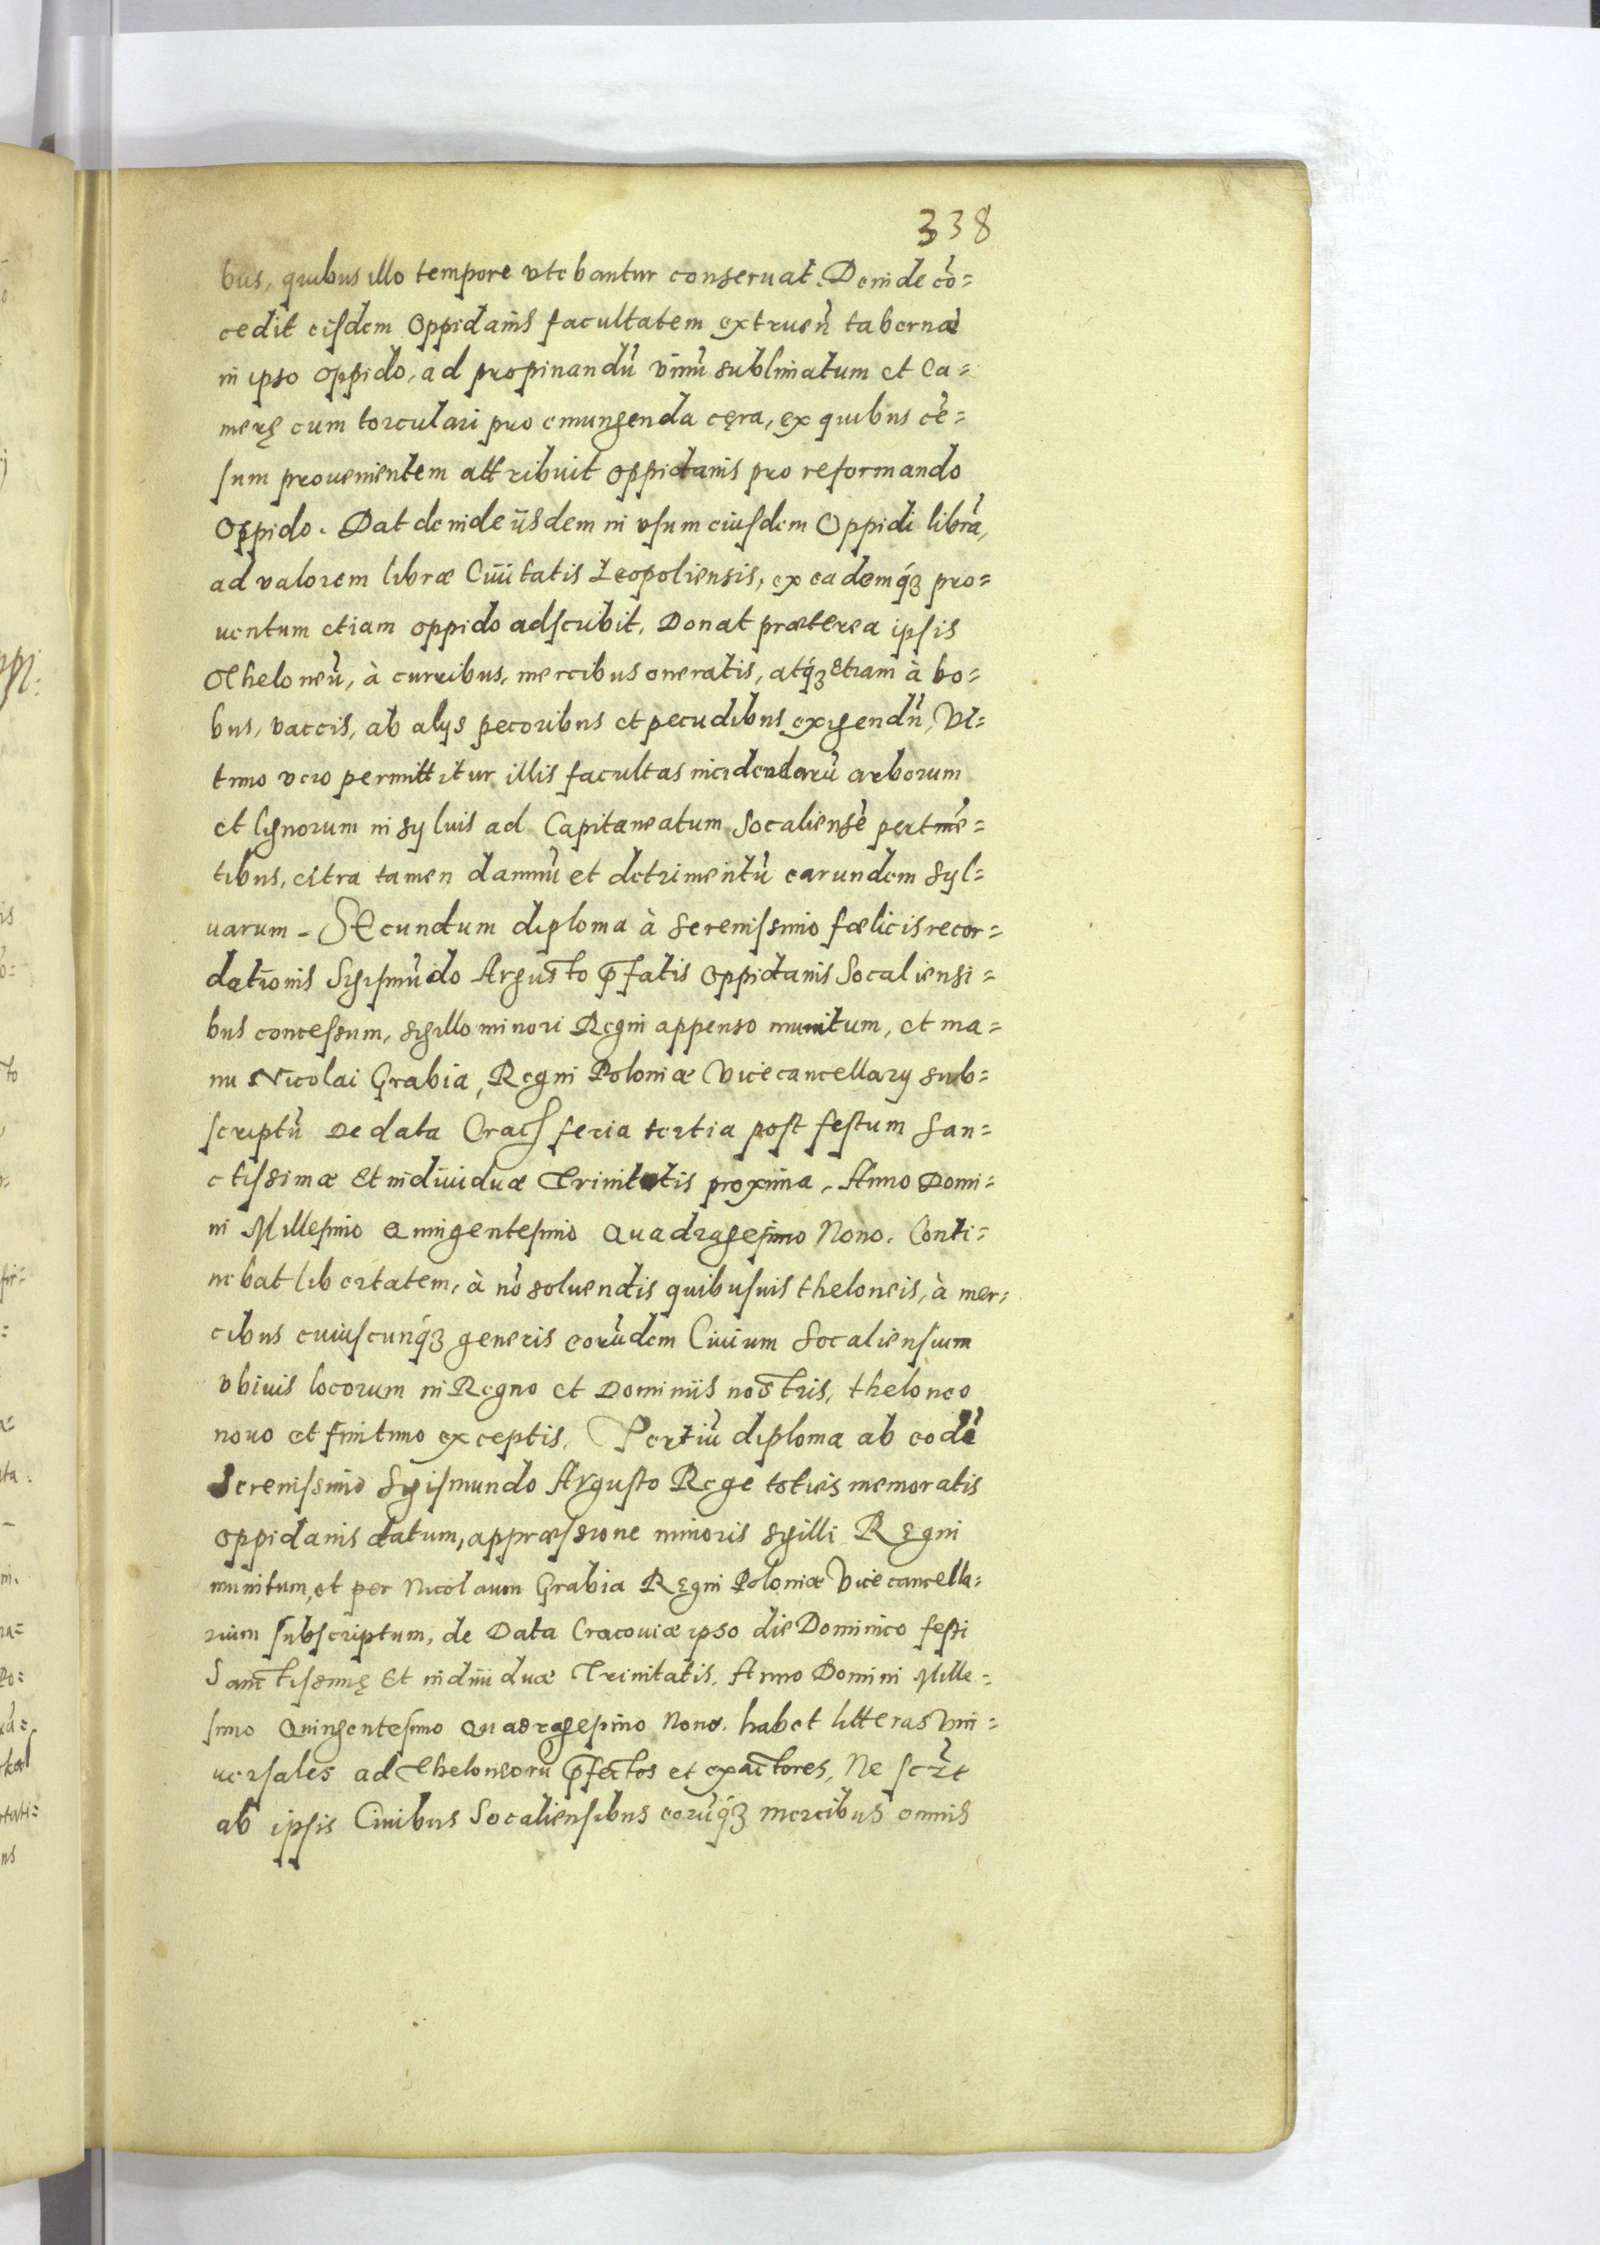 338
bus, quibus illo tempore vtebantur conseruat. Deinde cō=
cedit eisdem Oppidanis facultatem extruen̄ tabernā
in ipso Oppido, ad propinandū vinū sublimatum et Ca=
merę cum torculari pro emungenda cęra, ex quibus cē=
sum prouenientem attribuit Oppidanis pro reformando
Oppido. Dat deinde ijsdem in vsum eiusdem Oppidi librā,
ad valorem libræ Ciuitatis Leopoliensis, ex eademq́ꝫ pro=
uentum etiam oppido adscribit. Donat præterea ipsis
Theloneū, à curribus, mercibus oneratis, atq́ꝫ etiam à bo=
bus, vaccis, ab alijs pecoribus et pecudibus exigendū, Vl=
timo vero permittitur illis facultas incidendarū arborum
et lignorum in syluis ad Capitaneatum Socaliensē pertinē=
tibus, citra tamen damnū et detrimentū earundem syl=
uarum. SEcundum diploma à serenissimo fœlicis recor=
dationis Sigismūdo Augusto p̄fatis Oppidanis Socaliensi=
bus concessum, sigillo minori Regni appenso munitum, et ma=
nu Nicolai Grabia, Regni Poloniæ Vicecancellarij sub=
scriptū De data Crac feria tertia post festum San=
ctissimæ Et indiuiduæ Trinitatis proxima, Anno Domi=
ni Millesimo Quingentesimo Quadragesimo Nono. Conti=
nebat libertatem, à nō soluendis quibusuis theloneis, à mer=
cibus cuiuscunq́ꝫ generis eorūdem Ciuium Socaliensium
vbiuis locorum in Regno et Dominiis nostris, theloneo
nouo et finitimo exceptis. Tertiū diploma ab eodē
Serenissimo Sigismundo Augusto Rege toties memoratis
Oppidanis datum, appræssione minoris sigilli Regni
munitum, et per Nicolaum Grabia Regni Poloniæ Vicecancella=
rium subscriptum, de Data Cracouiæ ipso die Dominico festi
Sanctissimę Et indiuiduæ Trinitatis, Anno Domini Mille=
simo Quingentesimo Quadragesimo Nono. habet litteras Vni=
uersales ad Theloneorū p̄fectos et exactores, Ne
ab ipsis Ciuibus Socaliensibus eorūq́ꝫ mercibus omnis